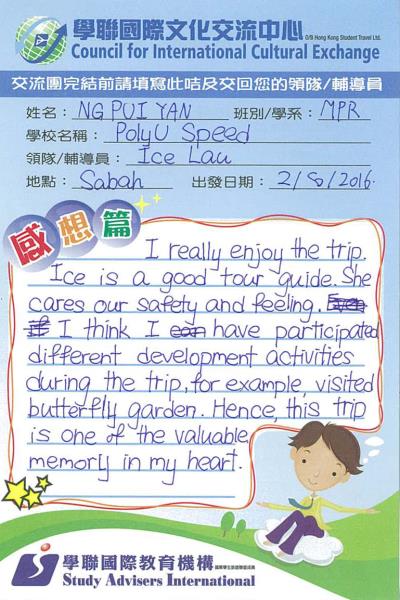 學聯國際文化交流中心 O/B Hong Kong Student Travel Ltd.
Council for International Cultural Exchange
交流團完結前請填寫此咭及交回您的領隊/輔導員
姓名： NG PUI YAN 班別/學系： MPR
學校名稱： PolyU Speed
領隊/輔導員： Ice Lau
地點： Sabah 出發日期： 2/8/2016.
感想篇
I really enjoy the trip.
Ice is a good tour guide. She
cares our safety and feeling. Even
if I think I can have participated
different development activities
during the trip, for example, visited
butterfly garden. Hence, this trip
is one of the valuable
memory in my heart.
學聯國際教育機構
Study Advisers International